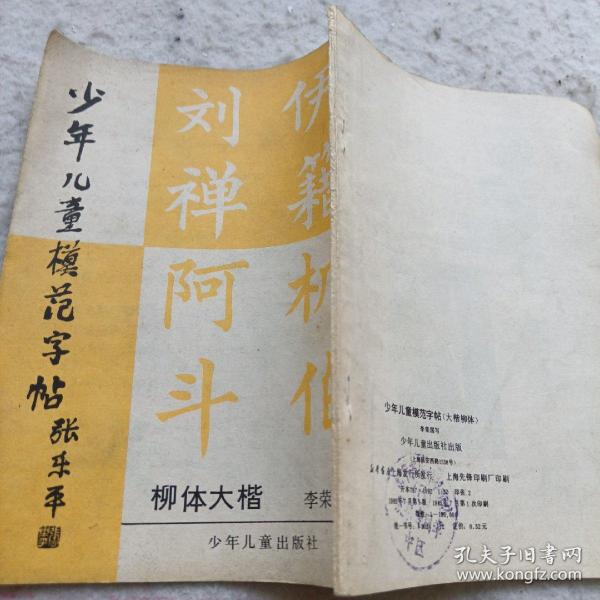 少年儿童模范字帖
张乐平
伊籍机伯
刘禅阿斗
柳体大楷
李荣
少年儿童出版社
少年儿童模范字帖(大楷柳体)
李荣国写
少年儿童出版社出版
上海发行所发行 上海先锋印刷厂印刷
定价:0.52元
孔夫子旧书网
www.kongfz.com